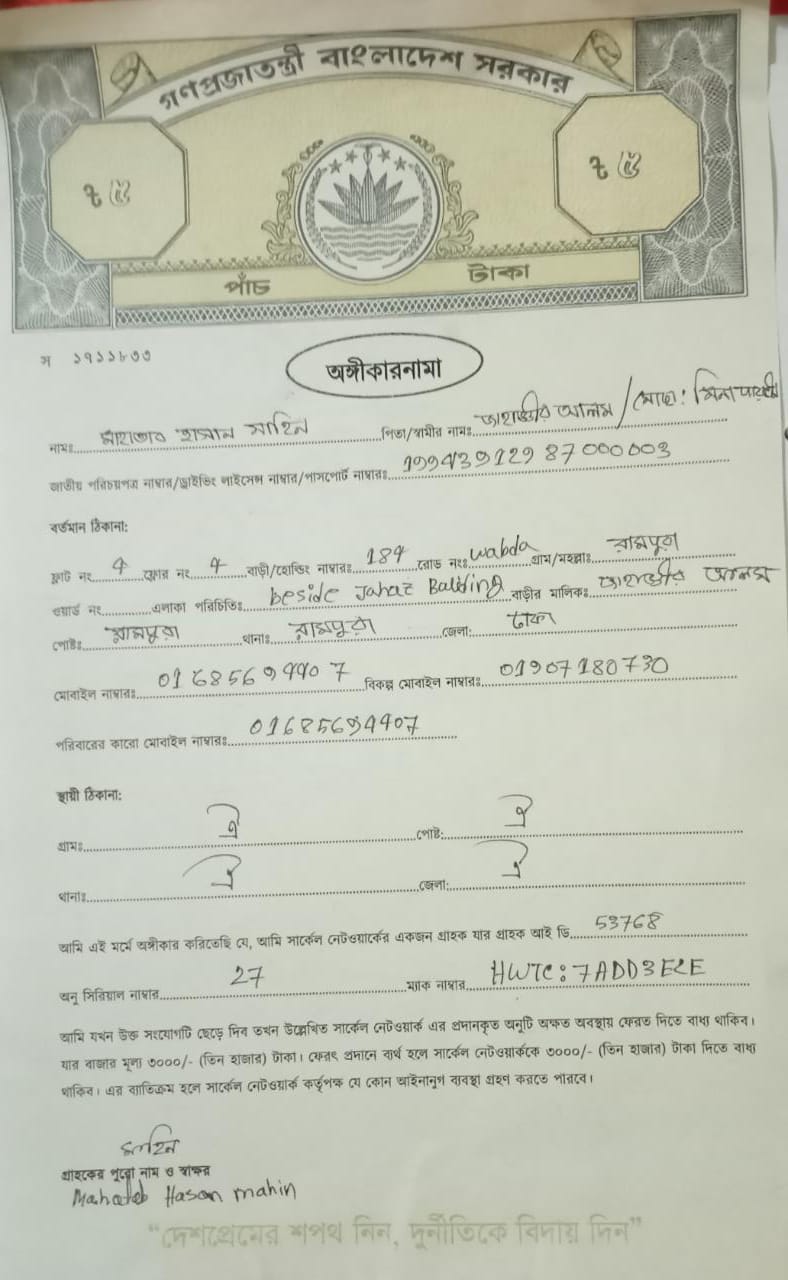 গণপ্রজাতন্ত্রী বাংলাদেশ সরকার
৳ ৫ ৳ ৫
পাঁচ টাকা
স ১৭১১৮৩৩
অঙ্গীকারনামা
নামঃ মাহাতাব হাসান মাহিন পিতা/স্বামীর নামঃ জাহাঙ্গীর আলম / মোছা:
জাতীয় পরিচয়পত্র নাম্বার/ড্রাইভিং লাইসেন্স নাম্বার/পাসপোর্ট নাম্বারঃ 19943912987000003
বর্তমান ঠিকানা:
ফ্লাট নং 4 ফ্লোর নং 4 বাড়ী/হোল্ডিং নাম্বারঃ 184 রোড নংঃ wabda গ্রাম/মহল্লাঃ রামপুরা
ওয়ার্ড নং এলাকা পরিচিতিঃ beside Jahaz Bullding বাড়ীর মালিকঃ জাহাঙ্গীর আলম
পোষ্টঃ রামপুরা থানাঃ রামপুরা জেলা: ঢাকা
মোবাইল নাম্বারঃ বিকল্প মোবাইল নাম্বারঃ 01907180730
পরিবারের কারো মোবাইল নাম্বারঃ
স্থায়ী ঠিকানা:
গ্রামঃ ঐ পোষ্ট: ঐ
থানাঃ ঐ জেলা: ঐ
আমি এই মর্মে অঙ্গীকার করিতেছি যে, আমি সার্কেল নেটওয়ার্কের একজন গ্রাহক যার গ্রাহক আই ডি 53768
অনু সিরিয়াল নাম্বার 27 ম্যাক নাম্বার HWTC: 7ADD3E2E
আমি যখন উক্ত সংযোগটি ছেড়ে দিব তখন উল্লেখিত সার্কেল নেটওয়ার্ক এর প্রদানকৃত অনুটি অক্ষত অবস্থায় ফেরত দিতে বাধ্য থাকিব।
যার বাজার মূল্য ৩০০০/- (তিন হাজার) টাকা। ফেরৎ প্রদানে ব্যর্থ হলে সার্কেল নেটওয়ার্ককে ৩০০০/- (তিন হাজার) টাকা দিতে বাধ্য
থাকিব। এর ব্যতিক্রম হলে সার্কেল নেটওয়ার্ক কর্তৃপক্ষ যে কোন আইনানুগ ব্যবস্থা গ্রহণ করতে পারবে।
মাহিন
গ্রাহকের পুরো নাম ও স্বাক্ষর
Mahadeb Hasan mahin
“দেশপ্রেমের শপথ নিন, দুর্নীতিকে বিদায় দিন”